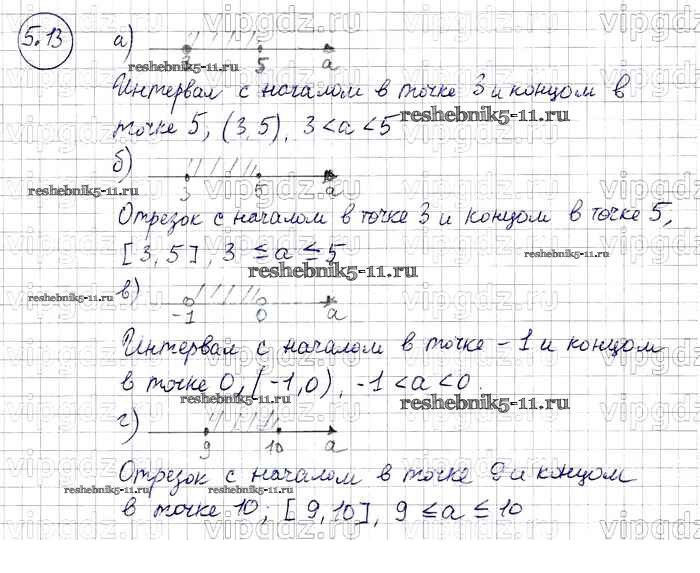 vipgdz.ru vipgdz.ru vipgdz.ru
5.13
а)
3 5 a
reshebnik5-11.ru reshebnik5-11.ru
Интервал с началом в точке 3 и концом в
точке 5, (3,5), 3 < a < 5
reshebnik5-11.ru
б)
3 5 a
reshebnik5-11.ru reshebnik5-11.ru
Отрезок с началом в точке 3 и концом в точке 5,
[3,5], 3 ≤ a ≤ 5
reshebnik5-11.ru reshebnik5-11.ru
в)
-1 0 a
reshebnik5-11.ru reshebnik5-11.ru
Интервал с началом в точке -1 и концом
в точке 0, (-1,0), -1 < a < 0.
reshebnik5-11.ru
г)
9 10 a
Отрезок с началом в точке 9 и концом
reshebnik5-11.ru reshebnik5-11.ru
в точке 10; [9,10], 9 ≤ a ≤ 10
vipgdz.ru vipgdz.ru vipgdz.ru